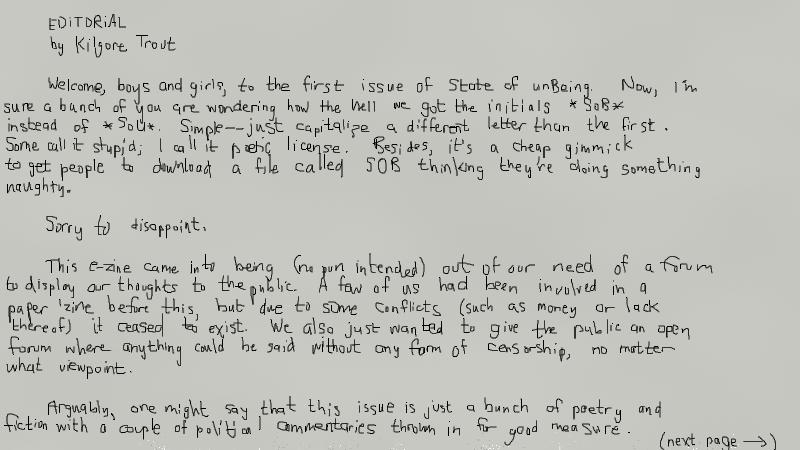 EDITORIAL
by Kilgore Trout
Welcome, boys and girls, to the first issue of State of unBeing. Now, I'm
sure a bunch of you are wondering how the hell we got the initials *SoB*
instead of *SoU*. Simple--just capitalize a different letter than the first.
Some call it stupid; I call it poetic license. Besides, it's a cheap gimmick
to get people to download a file called SOB thinking they're doing something
naughty.
Sorry to disappoint.
This e-zine came into being (no pun intended) out of our need of a forum
to display our thoughts to the public. A few of us had been involved in a
paper 'zine before this, but due to some conflicts (such as money or lack
thereof) it ceased to exist. We also just wanted to give the public an open
forum where anything could be said without any form of censorship, no matter
what viewpoint.
Arguably, one might say that this issue is just a bunch of poetry and
fiction with a couple of political commentaries thrown in for good measure.
(next page →)